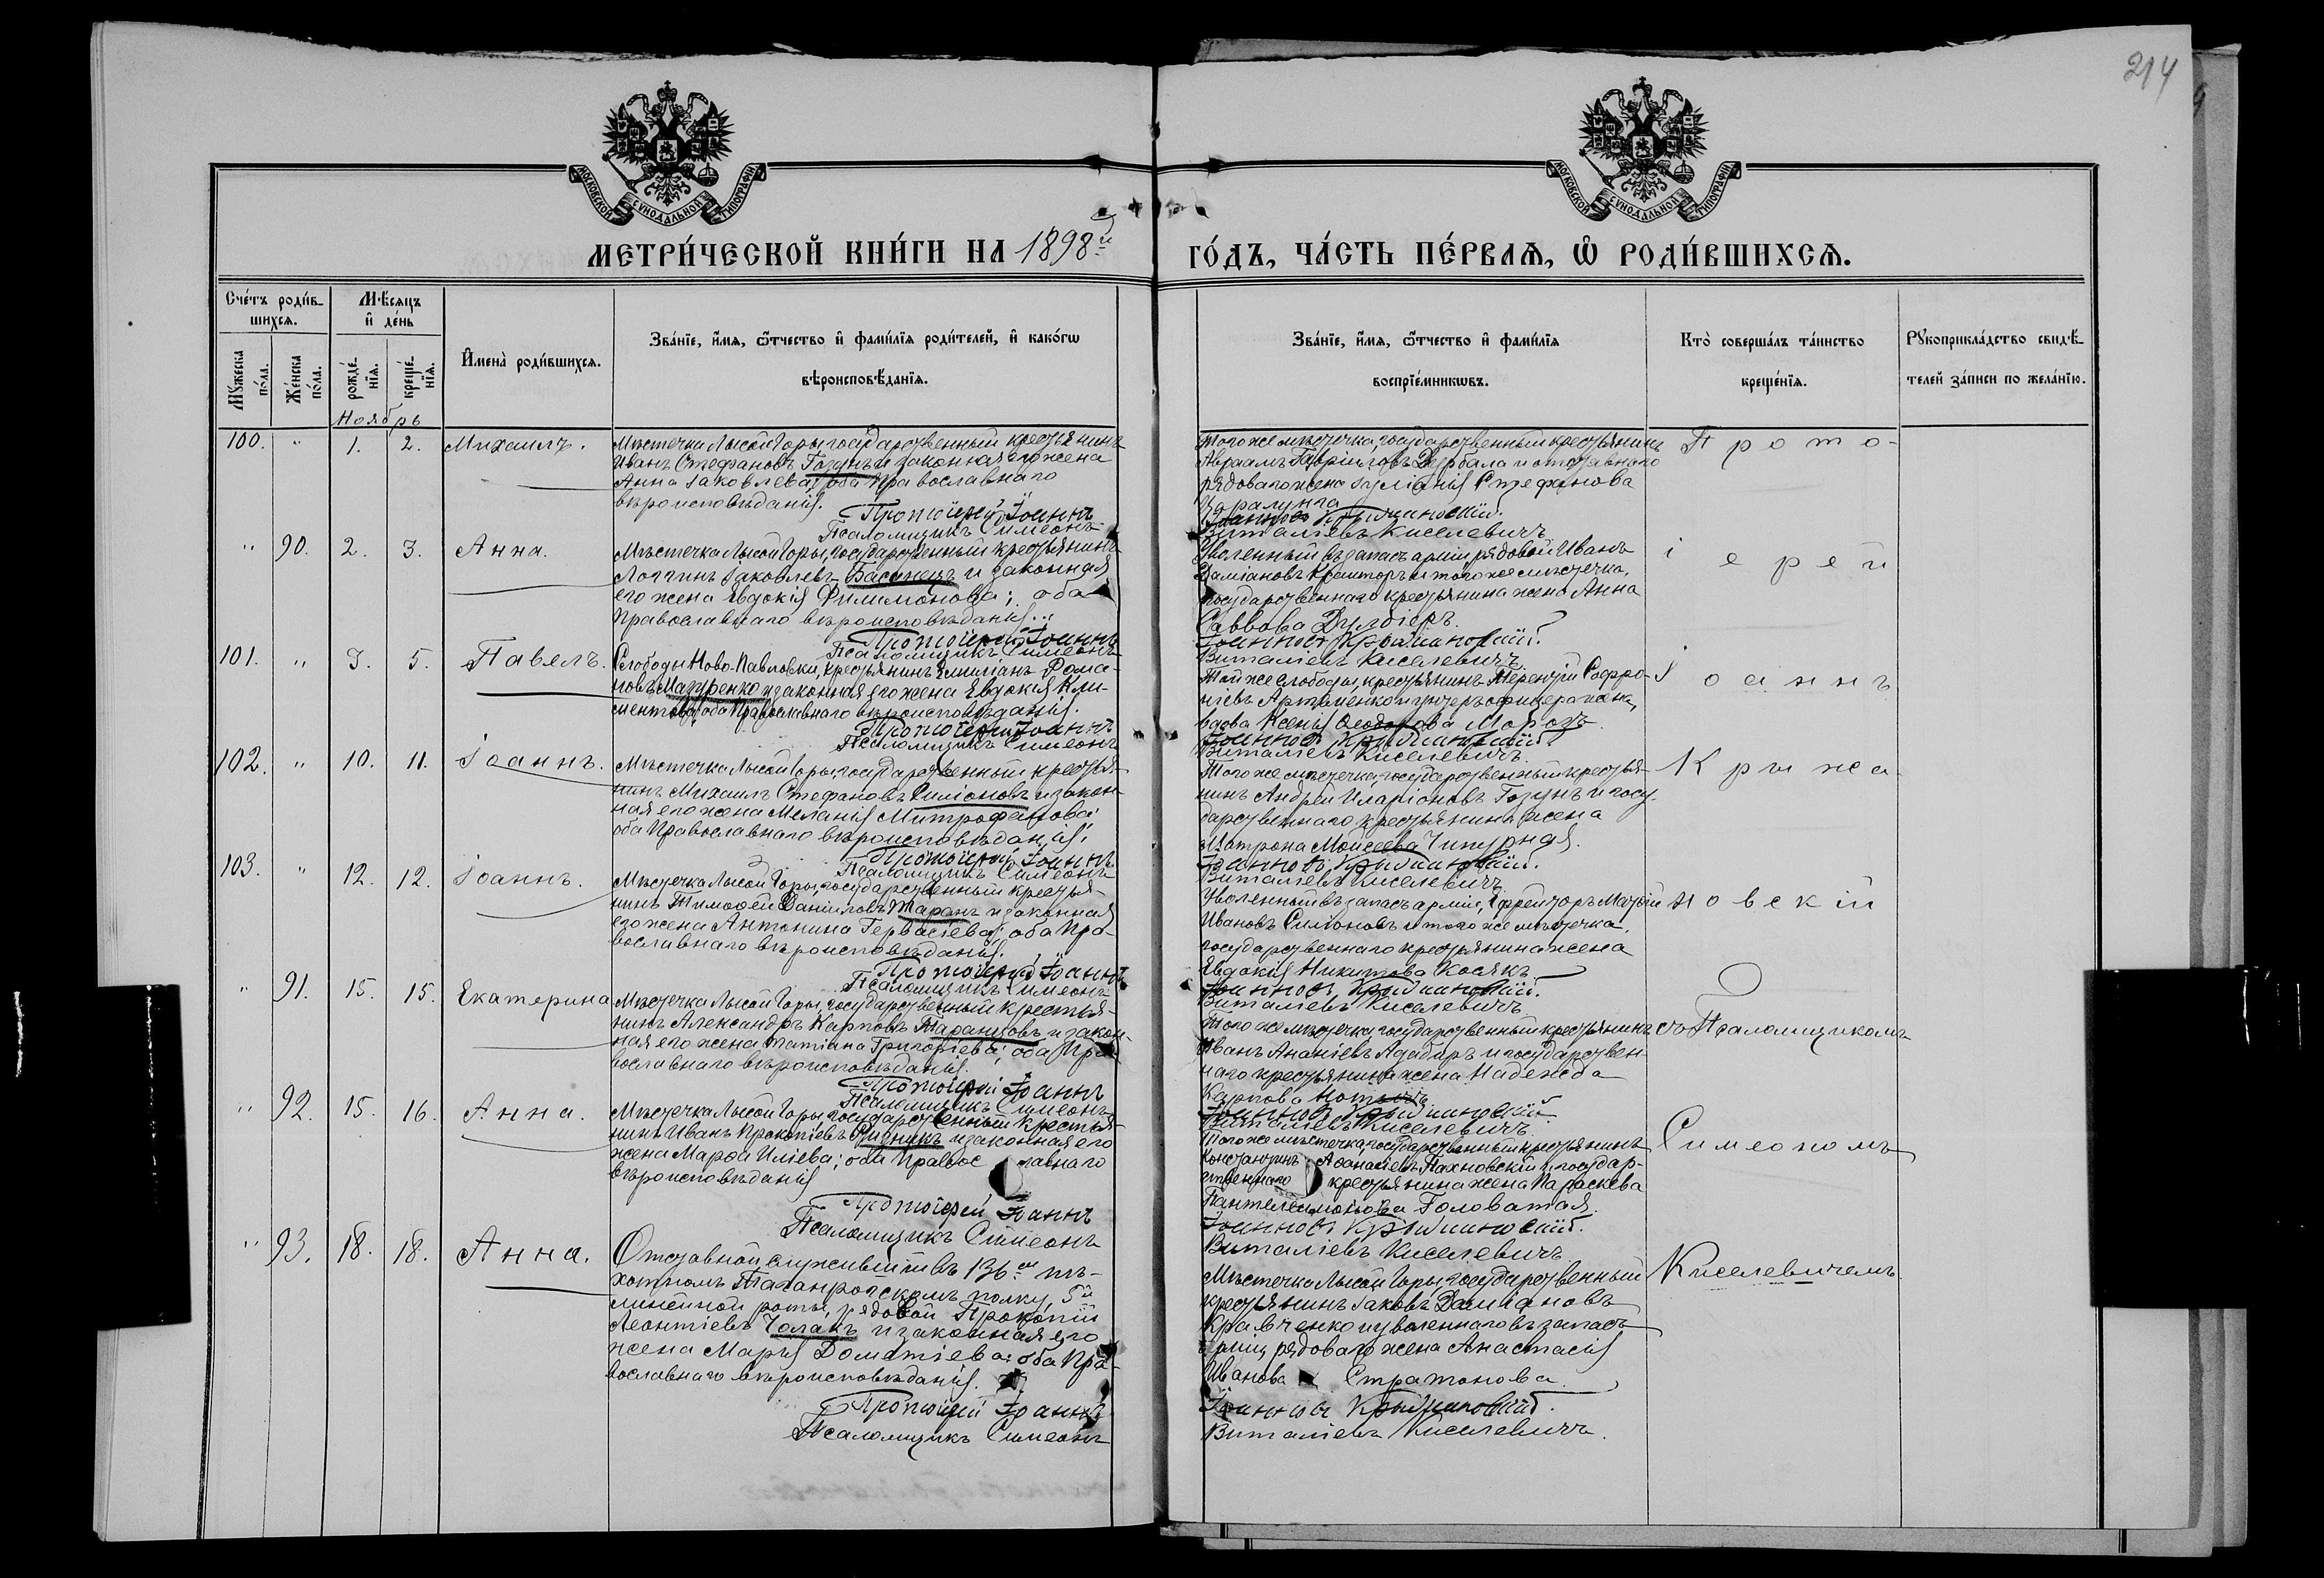 214
МОСКОВСКОЙ СѴНОДАЛЬНОЙ ТИПОГРАФІИ
МОСКОВСКОЙ СѴНОДАЛЬНОЙ ТИПОГРАФІИ
МЕТРИ́ЧЕСКОЙ КНИ́ГИ НА 1898й ГО́ДЪ, ЧА́СТЬ ПЕ́РВАѦ, Ѡ҆ РОДИ́ВШИХСѦ.
Сче́тъ роди́в-
шихсѧ.
Мꙋжеска по́ла.
Же́нска по́ла.
Мѣ́сѧцъ
и҆ де́нь
рожде́-
нїѧ.
креще́-
нїѧ.
И҆мена̀ роди́вшихсѧ.
Зва́нїе, и҆́мѧ, ѿ́чество и҆ фами́лїѧ роди́телей, и҆ како́гѡ
вѣроисповѣ́данїѧ.
Зва́нїе, и҆́мѧ, ѿ́чество и҆ фами́лїѧ
воспрїе́мникѡвъ.
Кто̀ соверша́лъ та́инство
креще́нїѧ.
Рꙋкоприкла́дство свидѣ́-
телей за́писи по жела́нїю.
Ноябрь
100. " 1. 2. Михаилъ.
Мѣстечка Лысой Горы, государственный крестьянинъ
Иванъ Стефановъ Гозунъ и законная его жена
Анна Іаковлева; оба православнаго
вѣроисповѣданія.
Протоіерей Іоаннъ
Псаломщикъ Симеонъ
Того же мѣстечка, государственный крестьянинъ
Авраамъ Гавріиловъ Дурбала и отставнаго
рядоваго жена Іуліанія Стефанова
Іоанновъ Крыжановскій.
Виталіевъ Киселевичъ.
Прото-
" 90. 2. 3. Анна.
Мѣстечка Лысой Горы, государственный крестьянинъ
Логгинъ Іаковлевъ Басанецъ и законная
его жена Евдокія Филимонова; оба
Православнаго вѣроисповѣданія.
Протоіерей Іоаннъ
Псаломщикъ Симеонъ
Уволенный въ запасъ арміи рядовой Иванъ
Даміановъ и того же мѣстечка,
государственнаго крестьянина жена Анна
Саввова
Іоанновъ Крыжановскій.
Виталіевъ Киселевичъ
іерей
101. " 3. 5. Павелъ.
Слободы Ново-Павловки, крестьянинъ Емиліанъ Рома-
новъ Мазуренко и законная его жена Евдокія Кли-
ментова; оба Православнаго вѣроисповѣданія.
Протоіерей Іоаннъ
Псаломщикъ Симеонъ
Той же слободы, крестьянинъ Терентій Софро-
ніевъ Артеменко и унтеръ-офицера жена,
вдова Ксенія Ѳеодорова Морозъ.
Іоанновъ Крыжановскій
Виталіевъ Киселевичъ.
Іоаннъ
102. " 10. 11. Іоаннъ.
Мѣстечка Лысой Горы, государственный крестья-
нинъ Михаилъ Стефановъ Симоновъ и закон-
ная его жена Меланія Митрофанова;
оба Православнаго вѣроисповѣданія;
Протоіерей Іоаннъ
Псаломщикъ Симеонъ
Того же мѣстечка, государственный крестья-
нинъ Андрей Иларіоновъ Гозунъ и госу-
дарственнаго крестьянина жена
Матрона Моисеева Чипурная.
Іоанновъ Крыжановскій.
Виталіевъ Киселевичъ
Крыжа-
103. " 12. 12. Іоаннъ.
Мѣстечка Лысой Горы, государственный крестья-
нинъ Тимоѳей Даніиловъ Таранъ и законная
его жена Антонина Гервасіева; оба Пра-
вославнаго вѣроисповѣданія.
Протоіерей Іоаннъ
Псаломщикъ Симеонъ
Уволенный въ запасъ арміи, Ефрейторъ Матѳій
Ивановъ Симоновъ и того же мѣстечка,
государственнаго крестьянина жена
Евдокія Никитова Косякъ.
Іоанновъ Крыжановскій.
Виталіевъ Киселевичъ.
новскій
" 91. 15. 15. Екатерина
Мѣстечка Лысой Горы, государственный крестья-
нинъ Александръ Карповъ Таранцовъ и закон-
ная его жена Татіана Григоріева; оба Пра-
вославнаго вѣроисповѣданія.
Протоіерей Іоаннъ
Псаломщикъ Симеонъ
Того же мѣстечка, государственный крестьянинъ
Иванъ Ананіевъ и государствен-
наго крестьянина жена Надежда
Карпова
Іоанновъ Крыжановскій
Виталіевъ Киселевичъ.
съ Псаломщикомъ
" 92. 15. 16. Анна.
Мѣстечка Лысой Горы, государственный крестья-
нинъ Иванъ Прокопіевъ Ризникъ и законная его
жена Марѳа Иліева; оба Православнаго
вѣроисповѣданія
Протоіерей Іоаннъ
Псаломщикъ Симеонъ
Того же мѣстечка, государственный крестьянинъ
Константинъ Аѳанасіевъ Пахновскій и государ-
ственнаго крестьянина жена Параскева
Пантелеимонова Головатая.
Іоанновъ Крыжановскій.
Виталіевъ Киселевичъ
Симеономъ
" 93. 18. 18. Анна.
Отставной, служившій въ 136мъ пѣ-
хотномъ Таганрогскомъ полку, 5й
линейной роты, рядовой Прокопій
Леонтіевъ Чолакъ и законная его
жена Марія Дометіева; оба Пра-
вославнаго вѣроисповѣданія.
Протоіерей Іоаннъ
Псаломщикъ Симеонъ
Мѣстечка Лысой Горы, государственный
крестьянинъ Іаковъ Даміановъ
Кравченко и уволеннаго въ запасъ
арміи, рядоваго жена Анастасія
Иванова Стратонова.
Іоанновъ Крыжановскій.
Виталіевъ Киселевичъ.
Киселевичемъ.